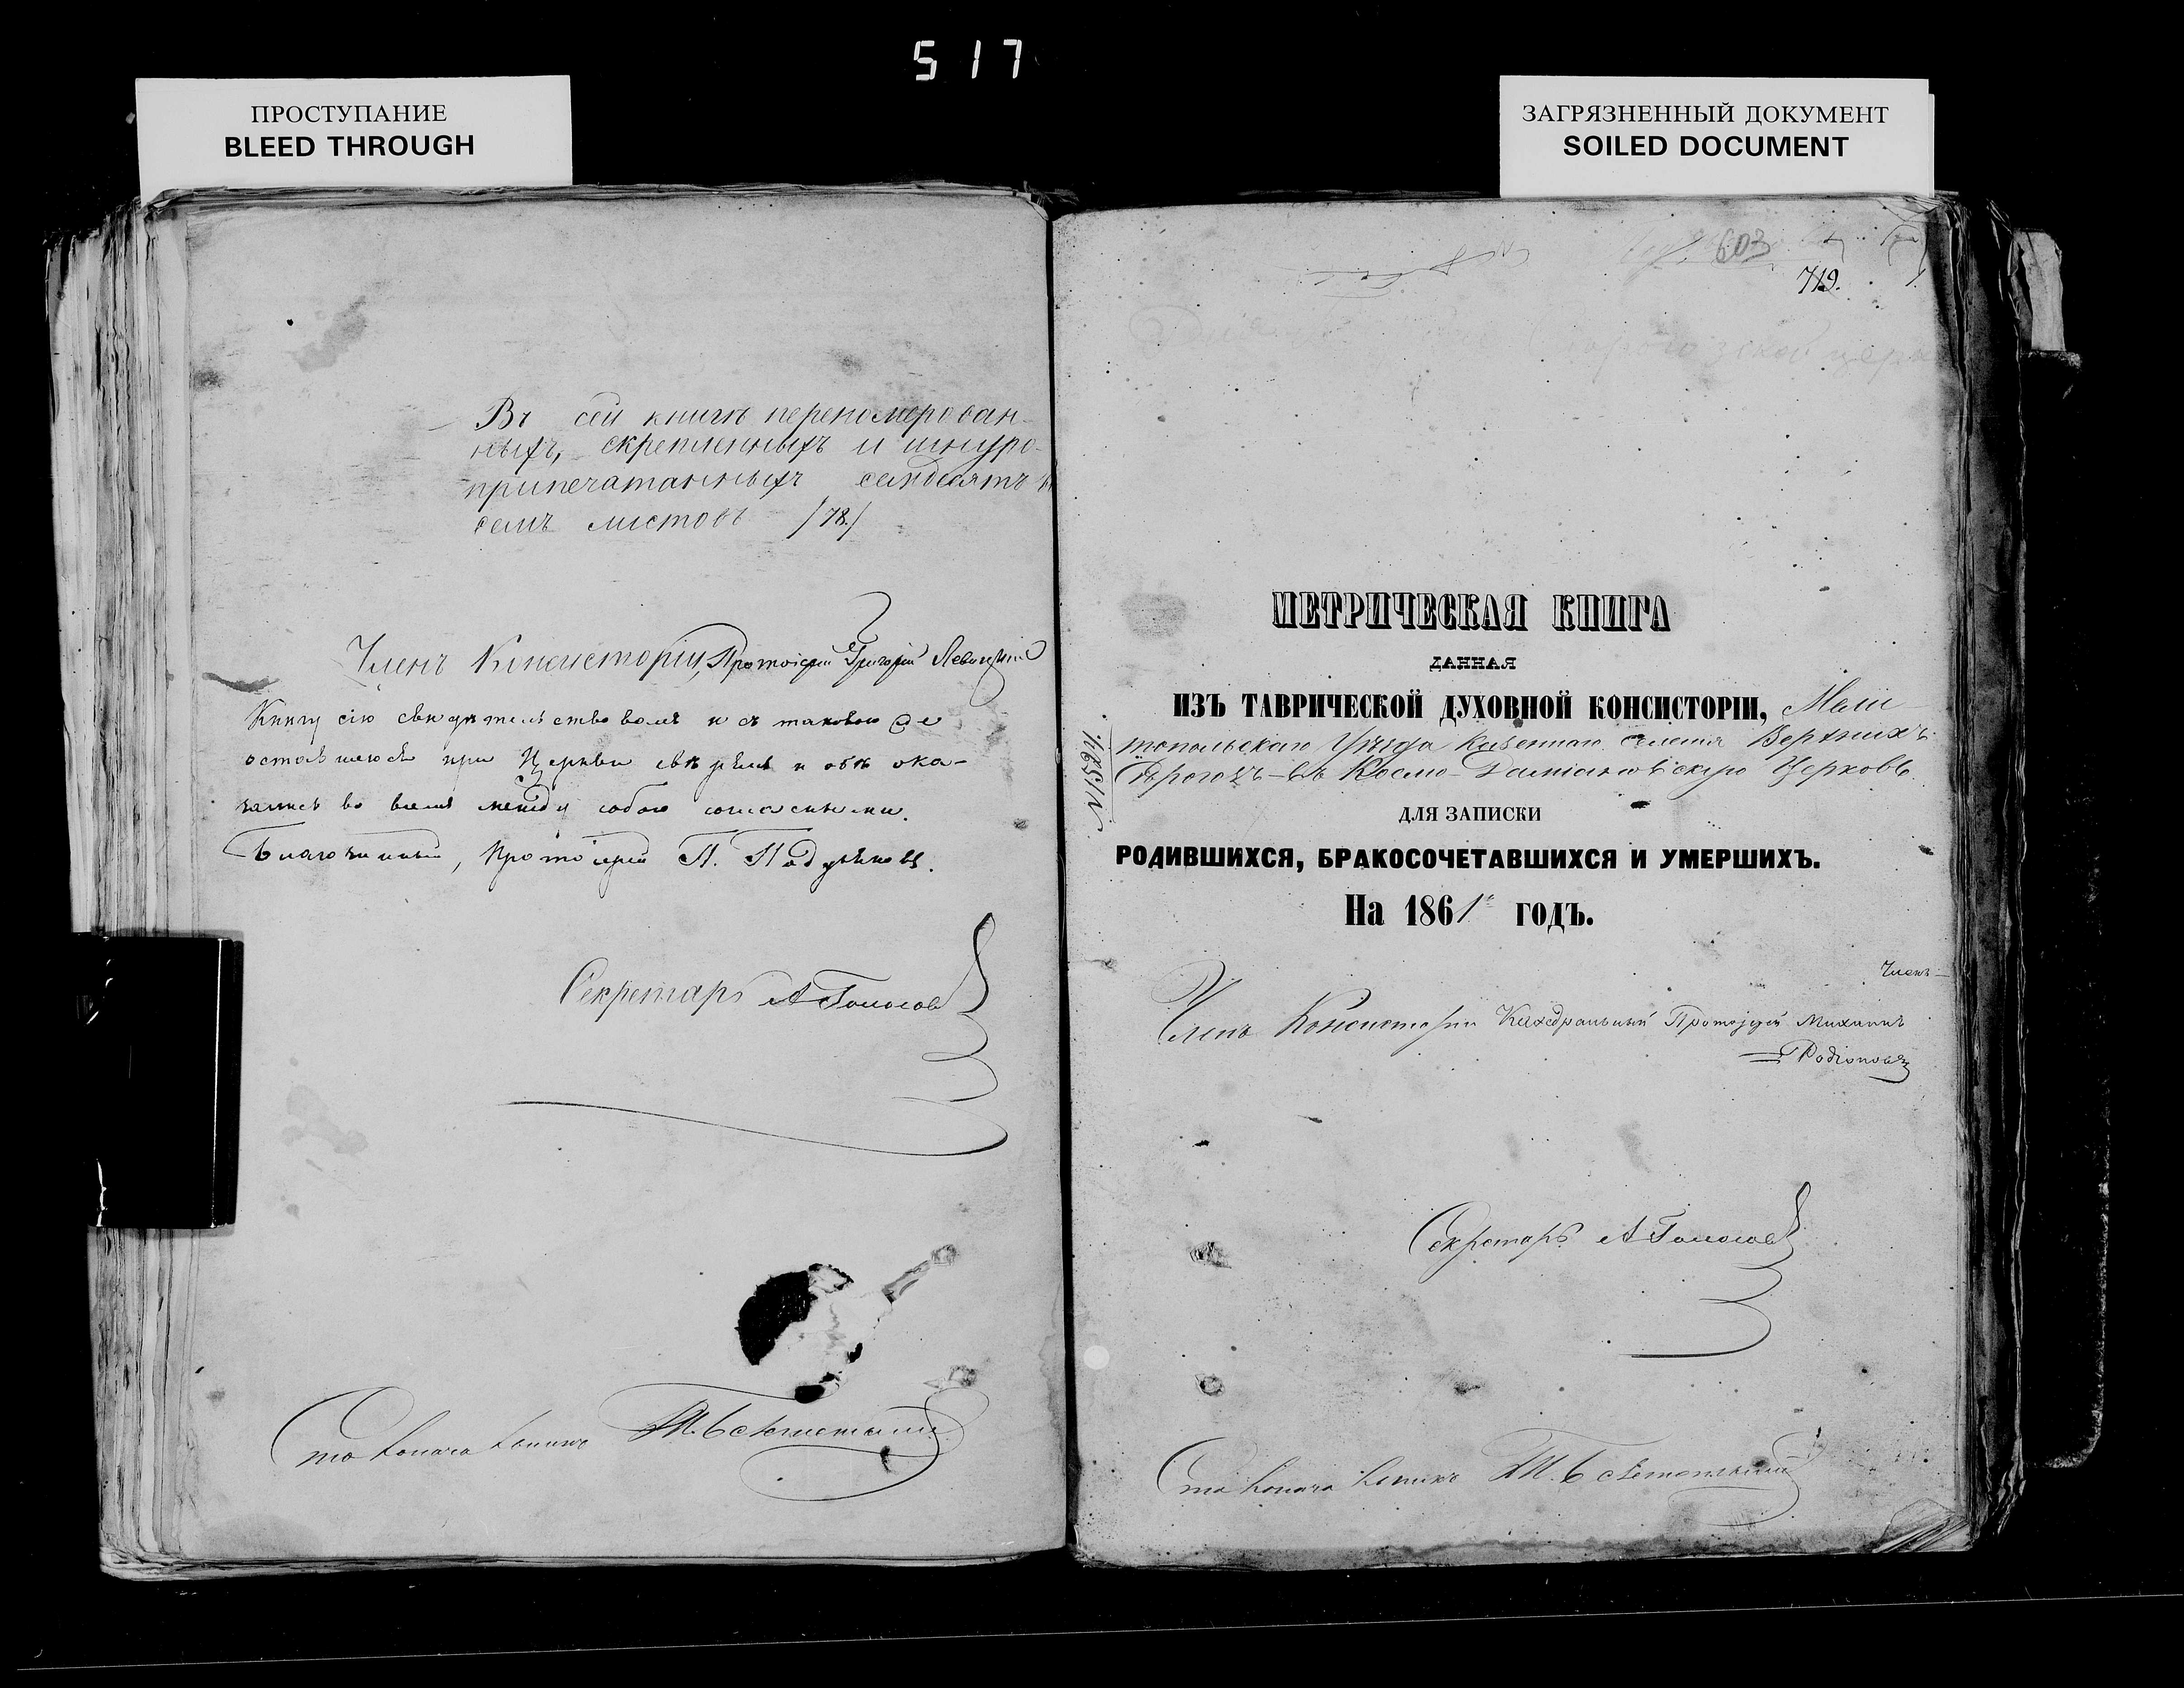 517
ПРОСТУПАНИЕ
BLEED THROUGH
ЗАГРЯЗНЕННЫЙ ДОКУМЕНТ
SOILED DOCUMENT
Въ сей книгѣ переномерован-
ныхъ, скрепленныхъ и шнуро-
припечатанныхъ семдесятъ
семъ листовъ /78./
Членъ Консисторіи, Протоіерей Григорій
Книгу сію свидѣтельствовалъ и съ таковою же
оставшеюся при Церкви свѣрялъ и обѣ ока-
зались во всемъ между собою согласными.
Благочинный, Протоіерей П.
Секретарь А Гомолов
603
719.
МЕТРИЧЕСКАЯ КНИГА
ДАННАЯ
ИЗЪ ТАВРИЧЕСКОЙ ДУХОВНОЙ КОНСИСТОРІИ, Мели-
топольскаго Уѣзда казеннаго селенія Верхнихъ
Сѣрогозъ-въ Космо-Даміановскую Церковь
ДЛЯ ЗАПИСКИ
РОДИВШИХСЯ, БРАКОСОЧЕТАВШИХСЯ И УМЕРШИХЪ.
На 1861 ГОДЪ.
Членъ
Членъ Консисторіи Каѳедральный Протоіерей Михаилъ
Родіоновъ
Секретарь А Гомолов